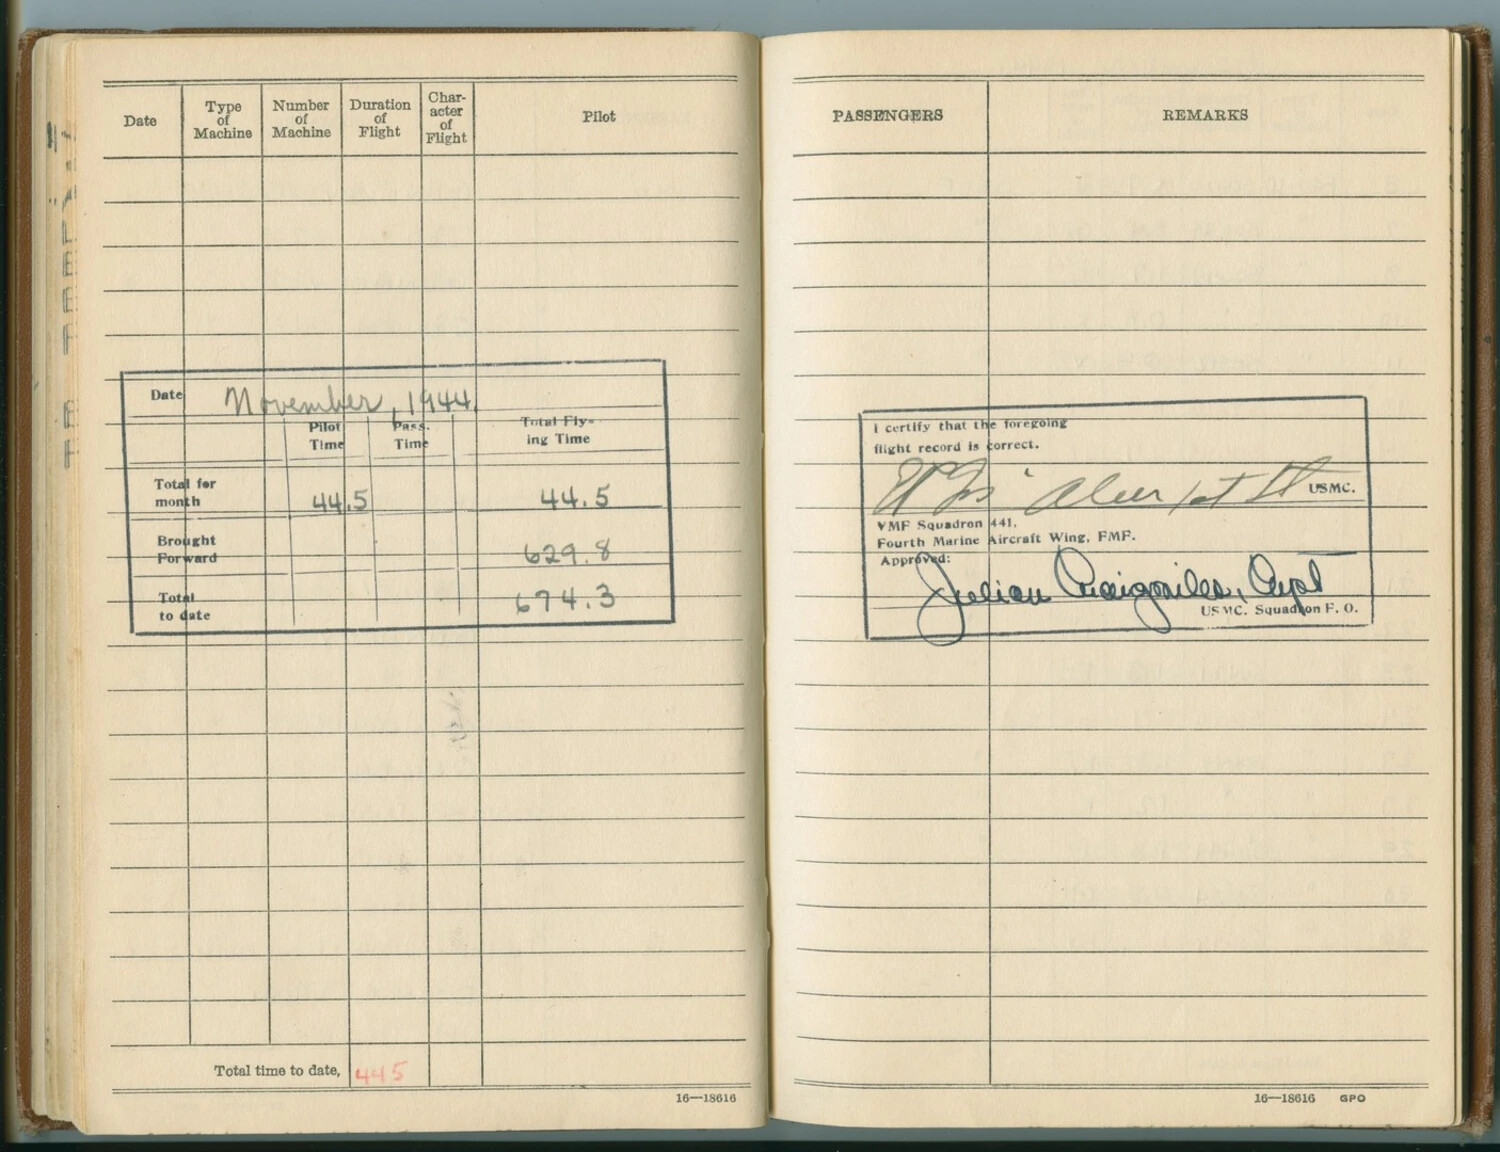 Date
Type of Machine
Number of Machine
Duration of Flight
Char-acter of Flight
Pilot
Date November, 1944
Pilot Time
Pass. Time
Total Fly-ing Time
Total for month 44.5 44.5
Brought Forward 629.8
Total to date 674.3
Total time to date, 445
16—18616
PASSENGERS
REMARKS
I certify that the foregoing
flight record is correct.
1st Lt USMC.
VMF Squadron 441,
Fourth Marine Aircraft Wing, FMF.
Approved:
Julian Craigmiles, Capt
USMC. Squadron F. O.
16—18616 GPO